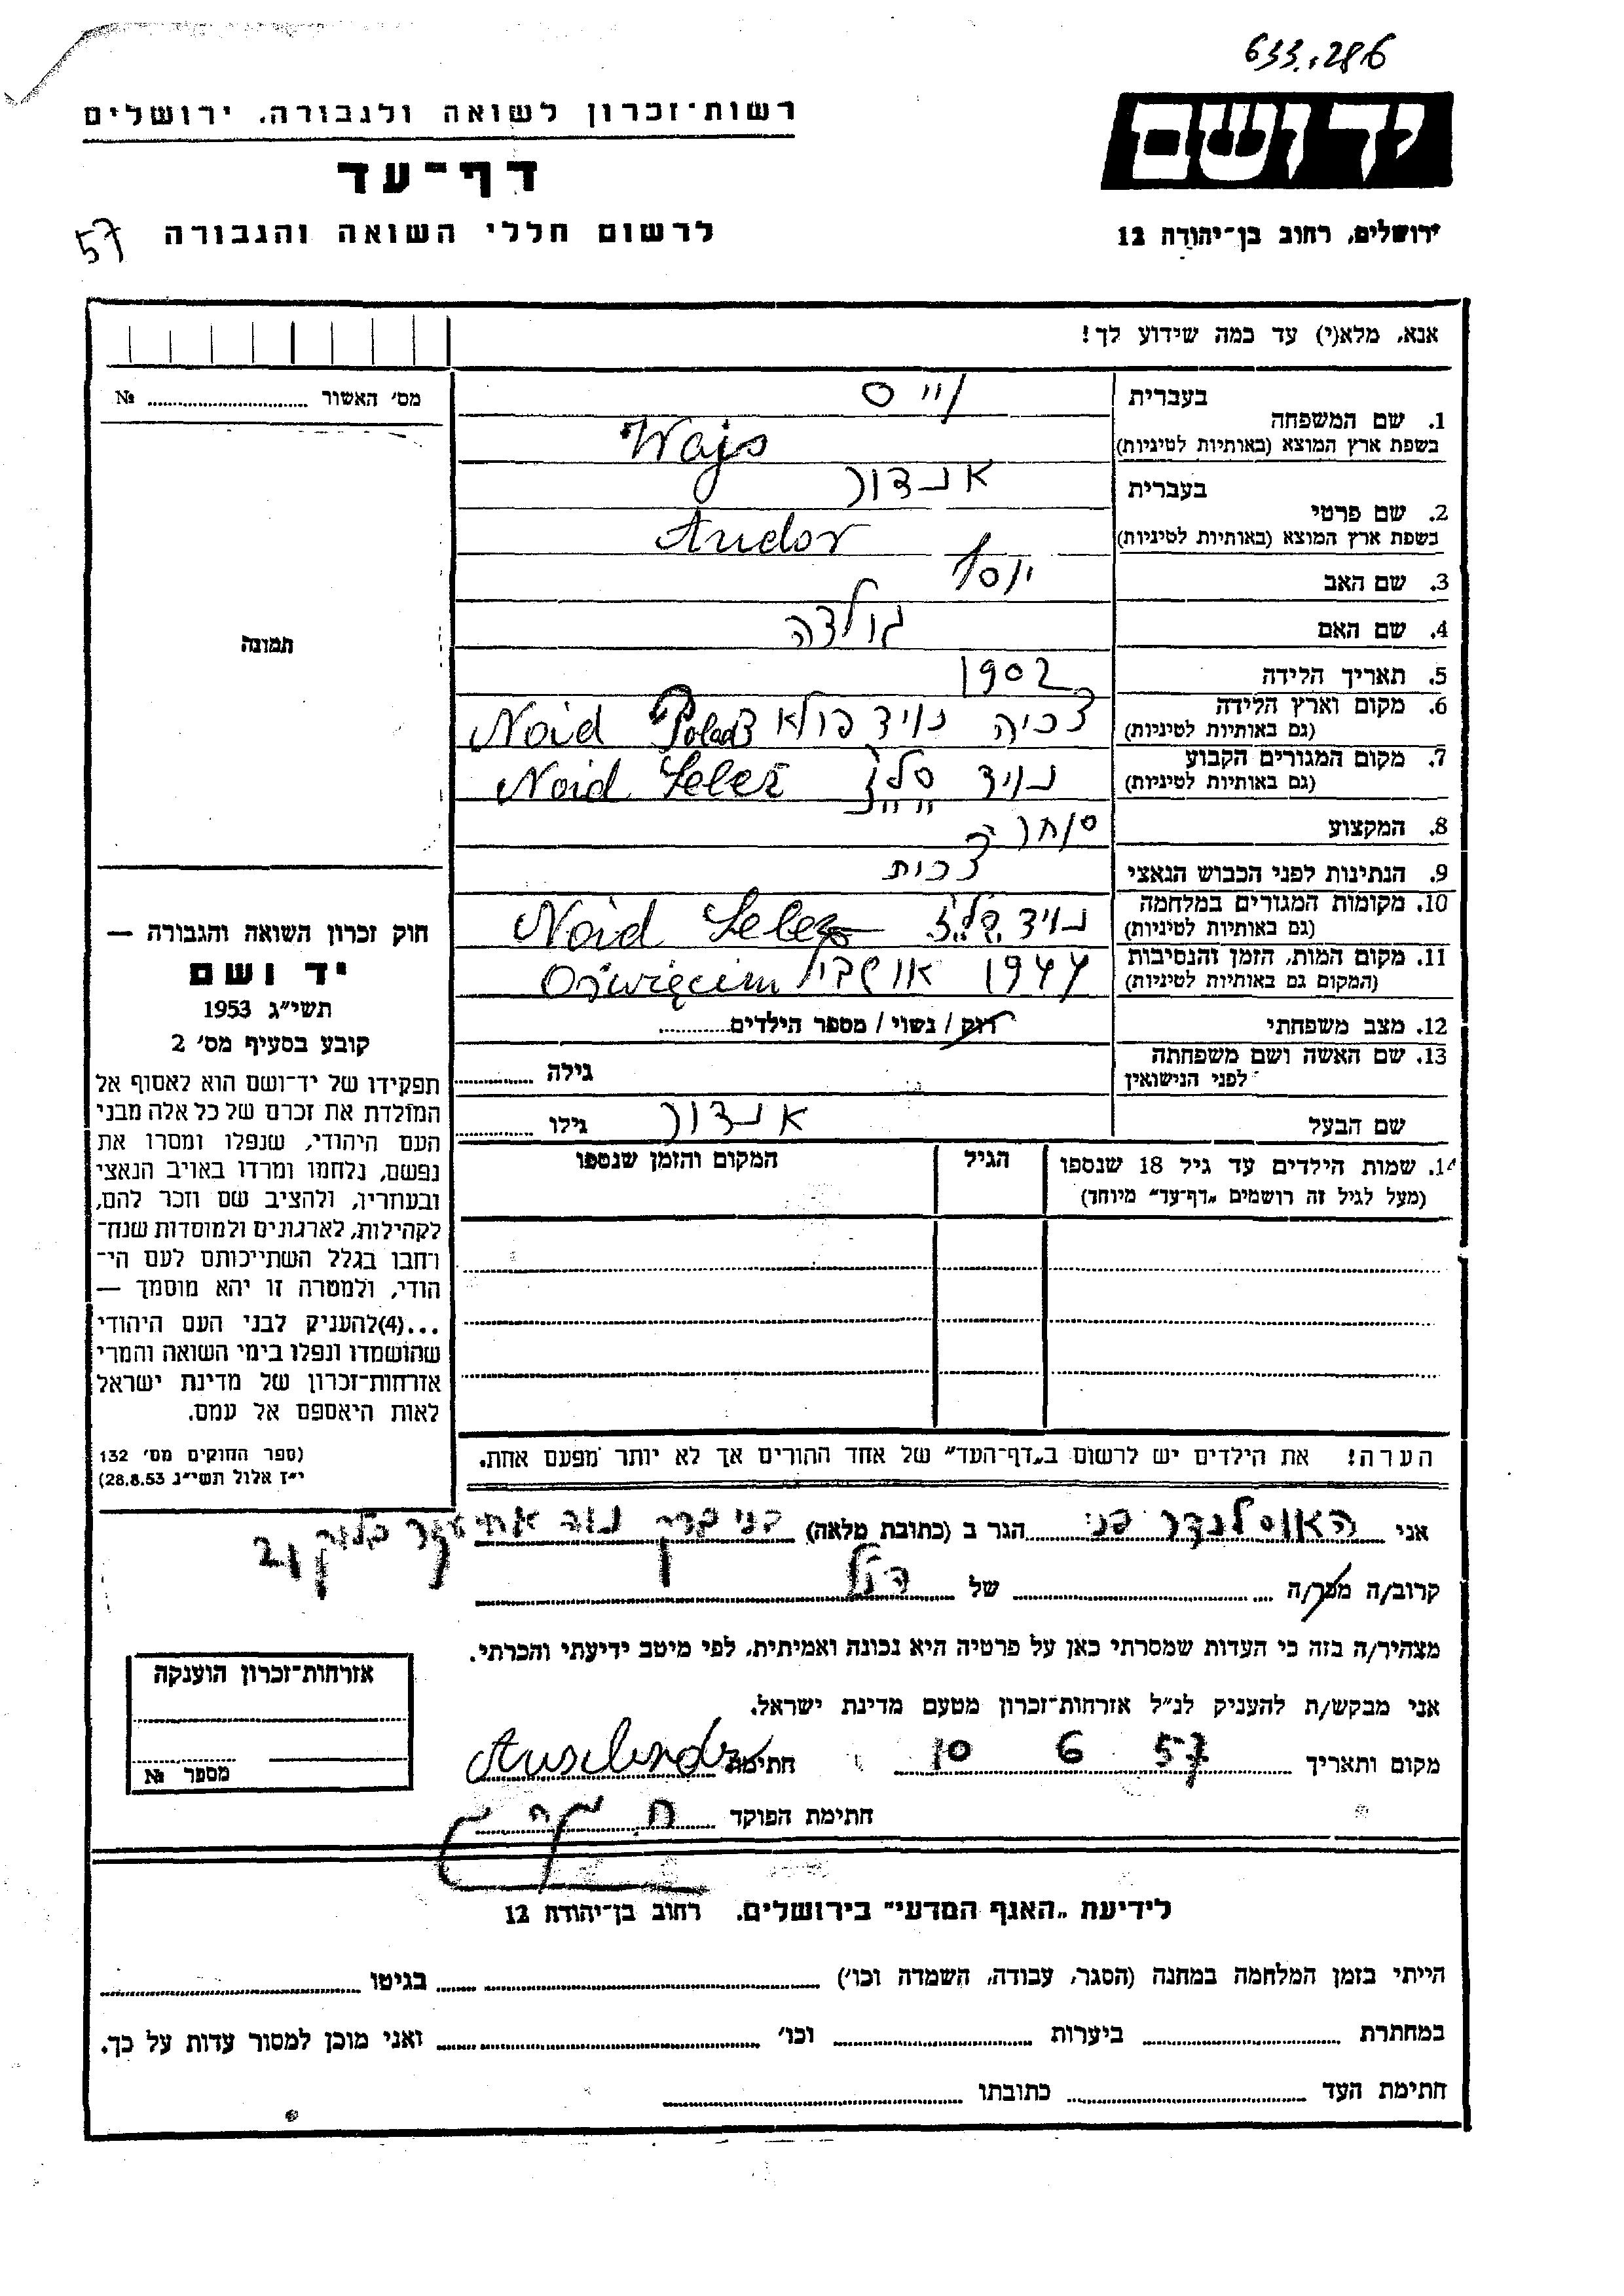 633.286
יד ושם
רשות־זכרון לשואה ולגבורה. ירושלים
דף־עד
לרשום חללי השואה והגבורה
57
ירושלים, רחוב בן־יהודה 12
אנא, מלא(י) עד כמה שידוע לך!
מס׳ האשור № 
תמונה
1. שם המשפחה בעברית וייס
בשפת ארץ המוצא (באותיות לטיניות) Wajs
2. שם פרטי בעברית אנדור
בשפת ארץ המוצא (באותיות לטיניות) Andor
3. שם האב יוסף
4. שם האם גולדה
5. תאריך הלידה 1902
6. מקום וארץ הלידה
(גם באותיות לטיניות) צכיה נויד Noid
7. מקום המגורים הקבוע
(גם באותיות לטיניות) נויד סלז Noid Selez
8. המקצוע סוחר
9. הנתינות לפני הכבוש הנאצי צכית
10. מקומות המגורים במלחמה
(גם באותיות לטיניות) נויד סלז Noid Selez
11. מקום המות, הזמן והנסיבות
(המקום גם באותיות לטיניות) 1944 Oświęcim
12. מצב משפחתי רווק / נשוי / מספר הילדים
13. שם האשה ושם משפחתה
לפני הנישואין גילה
שם הבעל אנדור גילו
14. שמות הילדים עד גיל 18 שנספו הגיל המקום והזמן שנספו
(מעל לגיל זה רושמים „דף־עד״ מיוחד)
הערה! את הילדים יש לרשום ב„דף־העד״ של אחד ההורים אך לא יותר מפעם אחת.
חוק זכרון השואה והגבורה —
יד ושם
תשי״ג 1953
קובע בסעיף מס׳ 2
תפקידו של יד־ושם הוא לאסוף אל
המולדת את זכרם של כל אלה מבני
העם היהודי, שנפלו ומסרו את
נפשם, נלחמו ומרדו באויב הנאצי
ובעוזריו, ולהציב שם וזכר להם,
לקהילות, לארגונים ולמוסדות שנח־
רחבו בגלל השתייכותם לעם הי־
הודי, ולמטרה זו יהא מוסמך —
...(4)להעניק לבני העם היהודי
שהושמדו ונפלו בימי השואה והמרי
אזרחות־זכרון של מדינת ישראל
לאות היאספם אל עמם.
(ספר החוקים מס׳ 132
י״ז אלול תשי״ג 28.8.53)
אני האוסלנדר הגר ב (כתובת מלאה) בני ברק
קרוב/ה מכר/ה של הנ״ל
מצהיר/ה בזה כי העדות שמסרתי כאן על פרטיה היא נכונה ואמיתית, לפי מיטב ידיעתי והכרתי.
אני מבקש/ת להעניק לנ״ל אזרחות־זכרון מטעם מדינת ישראל.
מקום ותאריך 10 6 57 חתימה
חתימת הפוקד
אזרחות־זכרון הוענקה
מספר №
לידיעת „האגף המדעי״ בירושלים. רחוב בן־יהודה 12
הייתי בזמן המלחמה במחנה (הסגר, עבודה, השמדה וכו׳) בגיטו
במחתרת ביערות וכו׳ ואני מוכן למסור עדות על כך.
חתימת העד כתובתו